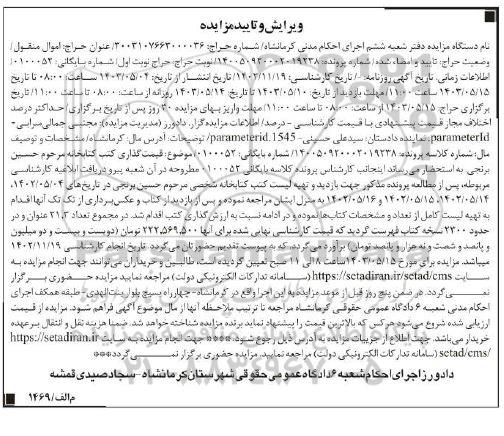 ویرایش و تایید مزایده
نام دستگاه مزایده دفتر شعبه ششم اجرای احکام مدنی کرمانشاه/ شماره حراج: ۳۰۰۳۱۰۷۶۶۳۰۰۰۰۳۶/ عنوان حراج: اموال منقول/
وضعیت حراج: تایید و امضاء شده/ شماره پرونده: ۱۴۰۰۵۰۹۲۰۰۰۲۰۱۹۲۳۸/ نوبت حراج: حراج نوبت اول/ شماره بایگانی: ۰۱۰۰۰۵۲/
اطلاعات زمانی: تاریخ آگهی روزنامه: -/ تاریخ کارشناسی: ۱۴۰۲/۱۱/۱۹/ تاریخ انتشار از تاریخ: ۱۴۰۳/۰۵/۰۴ ساعت: ۰۸:۰۰ تا تاریخ
۱۴۰۳/۰۵/۱۵ ساعت: ۱۱:۰۰/ مهلت بازدید از تاریخ: ۱۴۰۳/۰۵/۱۰ تا تاریخ: ۱۴۰۳/۰۵/۱۴ روزانه از ساعت: ۰۸:۰۰ تا ساعت: ۱۱:۰۰/ تاریخ
برگزاری حراج: ۱۴۰۳/۰۵/۱۵ از ساعت: ۰۸:۰۰ تا ساعت: ۱۱:۰۰/ مهلت واریز بهای مزایده ۳۰ روز پس از تاریخ برگزاری/ حداکثر درصد
اختلاف مجاز قیمت پیشنهادی با قیمت کارشناسی - درصد/ اطلاعات مزیده گزار: دادورز (مدیریت مزایده): مجتبی جمالی سرابی-
parameterId: نماینده دادستان: سیدعلی حسینی- parameterid.1545/ توضیحات: آدرس مال: کرمانشاه/ مشخصات و توصیف
مال: شماره کلاسه پرونده: ۱۴۰۰۵۰۹۲۰۰۰۲۰۱۹۲۳۸ شماره بایگانی: ۰۱۰۰۰۵۲ موضوع: قیمت گذاری کتب کتابخانه مرحوم حسین
برنجی. به استحضار می رساند اینجانب کارشناس پرونده کلاسه بایگانی ۰۱۰۰۰۵۲ مطروحه در آن شعبه پیرو دریافت ابلاغیه کارشناسی
مربوطه، پس از مطالعه پرونده مذکور جهت بازدید و تهیه لیست کتب کتابخانه شخصی مرحوم حسین برنجی در تاریخ های ۱۴۰۲/۰۵/۰۴،
۱۴۰۲/۰۵/۱۴، ۱۴۰۲/۰۵/۱۵ و ۱۴۰۲/۰۵/۱۶ به منزل ایشان مراجعه نموده و پس از بازدید از کتاب و عکس برداری از تک تک آنها اقدام
به تهیه لیست کامل از تعداد و مشخصات کتاب ها نموده و در ادامه نسبت به ارزش گذاری کتب اقدام شد. در مجموع تعداد ۲،۳ عنوان و در
حدود ۲۳۰۰ نسخه کتاب فهرست گردید که قیمت کارشناسی نهایی شده برای آنها ۲۲۲،۵۶۹،۵۰۰ تومان (دویست و بیست و دو میلیون
و پانصد و شصت و نه هزار و پانصد تومان) برآورد می گردد، که به پیوست تقدیم حضورتان می گردد. تاریخ انجام کارشناسی ۱۴۰۲/۱۱/۱۹
میباشد. مزایده برای مورخ ۱۴۰۳/۰۵/۱۵ ساعت ۸ الی ۱۱ صبح تعیین گردیده است، طالبین و خریداران می توانند جهت انجام مزایده به
سایت https://setadiran.ir/setad/cms (سامانه تدارکات الکترونیکی دولت) مراجعه نمایید مزایده حضوری برگزار
نمی گردد. در ضمن پنج روز قبل از موعد مزایده به این اجرا واقع در کرمانشاه- چهارراه بسیج بلوار بنت الهدی- طبقه همکف اجرای
احکام مدنی شعبه ۶ دادگاه عمومی حقوقی کرمانشاه مراجعه تا ترتیب ملاحظه آنها از مال موضوع آگهی فراهم شود. مزایده از قیمت
ارزیابی شده شروع می شود هر کس که بالاترین قیمت را پیشنهاد نماید برنده مزایده شناخته خواهد شد. ضمنا هزینه نقل و انتقال بر عهده
خریدار می باشد. جهت اطلاع از جزییات مزایده به آدرس ذیل رجوع شود *** جهت انجام مزایده به سایت https://setadiran.ir
/setad/cms (سامانه تدارکات الکترونیکی دولت) مراجعه نمایید. مزایده حضوری برگزار نمی گردد***
دادورز اجرای احکام شعبه ۶ دادگاه عمومی حقوقی شهرستان کرمانشاه - سجاد صیدی قمشه
م الف/ ۱۴۶۹